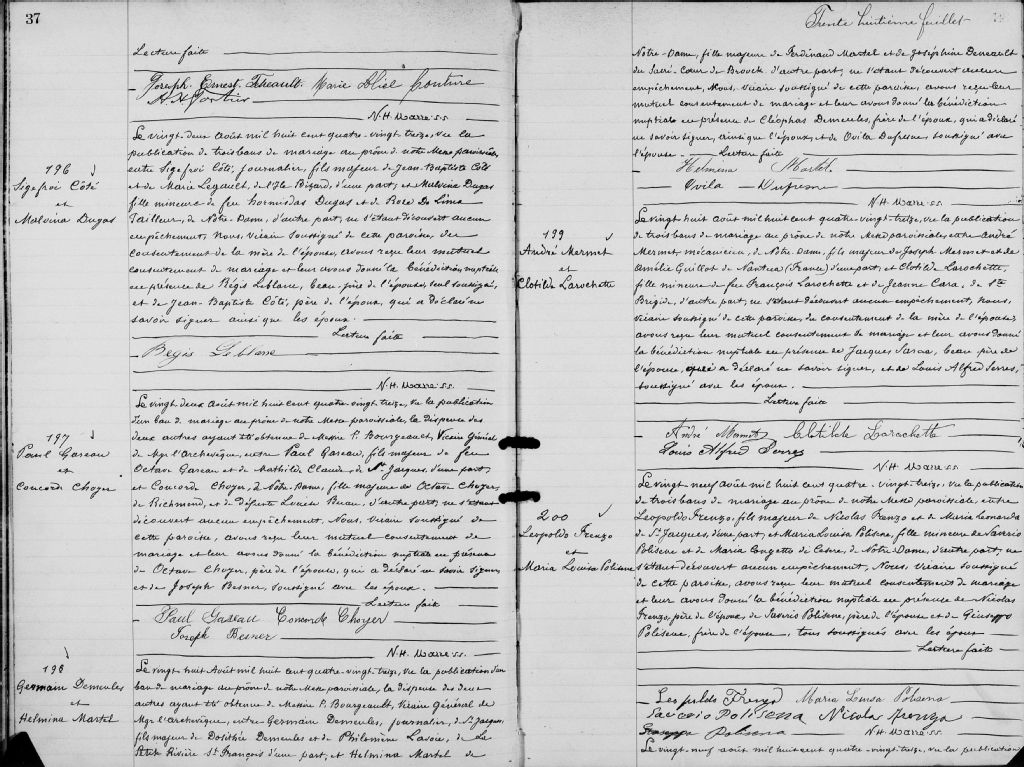 37
Lecture faite
Joseph Ernest Feteault. Marie Couture
N. H. Maress.
196
Sigefroi Côté
et
Malvina Dugas
Le vingt-deux Août mil huit cent quatre-vingt-treize, vu la
publication de trois bans de mariage au prône de notre Messe paroissiale,
entre Sigefroi Côté, journalier, fils majeur de Jean-Baptiste Côté
et de Marie Legault, de l'Ile Bizard, d'une part, et Malvina Dugas
fille mineure de feu hormisdas Dugas et de Rose De Lima
Tailleur, de Notre-Dame, d'autre part, ne s'étant découvert aucun
empêchement, Nous, Vicaire soussigné de cette paroisse, du
consentement de la mère de l'épouse, avons reçu leur mutuel
consentement de mariage et leur avons donné la bénédiction nuptiale
en présence de Régis Leblanc, beau-père de l'épouse, seul soussigné,
et de Jean-Baptiste Côté, père de l'époux, qui a déclaré ne
savoir signer ainsi que les époux.
Lecture faite
Regis Leblanc
N. H. Maress.
197
Paul Gareau
et
Concorde Choyer
Le vingt-deux Août mil huit cent quatre-vingt-treize, vu la publication
d'un ban de mariage au prône de notre Messe paroissiale, la dispense des
deux autres ayant été obtenue de Messire P. Bourgeault, Vicaire Général
de Mgr l'Archevêque, entre Paul Gareau, fils majeur de feu
Octave Gareau et de Mathilde Claude, de St Jacques, d'une part,
et Concorde Choyer, de Notre-Dame, fille majeure de Octave Choyer,
de Richmond, et de défunte Louise Buau, d'autre part, ne s'étant
découvert aucun empêchement, Nous, Vicaire soussigné de
cette paroisse, avons reçu leur mutuel consentement de
mariage et leur avons donné la bénédiction nuptiale en présence
de Octave Choyer, père de l'épouse, qui a déclaré ne savoir signer,
et de Joseph Besner, soussigné avec les époux.
Lecture faite
Paul Gareau Concorde Choyer
Joseph Besner
N. H. Maress.
198
Germain Demeules
et
Helmina Martel
Le vingt-huit Août mil huit cent quatre-vingt-treize, vu la publication d'un
ban de mariage au prône de notre Messe paroissiale, la dispense des deux
autres ayant été obtenue de Messire P. Bourgeault, Vicaire Général de
Mgr l'archevêque, entre Germain Demeules, journalier, de St Jacques,
fils majeur de Dosithée Demeules et de Philomène Lavoie, de La
Petite Rivière St François d'une part, et Helmina Martel de
Trente huitième feuillet
Notre-Dame, fille majeure de Ferdinand Martel et de Joséphine Deneault
du Sacré-Coeur de d'autre part, ne s'étant découvert aucun
empêchement, Nous, Vicaire soussigné de cette paroisse, avons reçu leur
mutuel consentement de mariage et leur avons donné la bénédiction
nuptiale en présence de Cléophas Demeules, frère de l'époux, qui a déclaré
ne savoir signer, ainsi que l'époux, et de Ovila Dufresne, soussigné avec
l'épouse. Lecture faite
Helmina Martel
Ovila Dufresne
N. H. Maress.
199
André Mermet
et
Clotilde Larochette
Le vingt-huit Août mil huit cent quatre-vingt-treize, vu la publication
de trois bans de mariage au prône de notre Messe paroissiale, entre André
Mermet mécanicien, de Notre Dame, fils majeur de Joseph Mermet et de
Amélie Guillot de Nantua (France) d'une part, et Clotilde Larochette,
fille mineure de feu François Larochette et de Jeanne Cara, de Ste
Brigide, d'autre part, ne s'étant découvert aucun empêchement, Nous,
Vicaire soussigné de cette paroisse, du consentement de la mère de l'épouse,
avons reçu leur mutuel consentement de mariage et leur avons donné
la bénédiction nuptiale en présence de Jacques Sarca, beau père de
l'épouse, qui a déclaré ne savoir signer, et de Louis Alfred Serres,
soussigné avec les époux.
Lecture faite
André Mermet Clotilde Larochette
Louis Alfred Serres
N. H. Maress.
200
Leopoldo Frenzo
et
Maria Louisa Polisena
Le vingt-neuf Août mil huit cent quatre-vingt-treize, vu la publication
de trois bans de mariage au prône de notre Messe paroissiale, entre
Leopoldo Frenzo, fils majeur de Nicolas Frenzo et de Maria Leonarda
de St Jacques, d'une part, et Maria Louisa Polisena, fille mineure de Saverio
Polisena et de Maria Cangetta de Cesare, de Notre Dame, d'autre part, ne
s'étant découvert aucun empêchement, Nous, Vicaire soussigné
de cette paroisse, avons reçu leur mutuel consentement de mariage
et leur avons donné la bénédiction nuptiale en présence de Nicolas
Frenzo, père de l'époux, de Saverio Polisena, père de l'épouse et de Giuseppo
Polisena, frère de l'épouse, tous soussignés avec les époux
Lecture faite
Leopoldo Frenzo Maria Luisa Polisena
Saverio Polisena Nicolas Frenzo
Polisena N. H. Maress.
Le vingt-neuf août mil huit cent quatre-vingt-treize, vu la publication